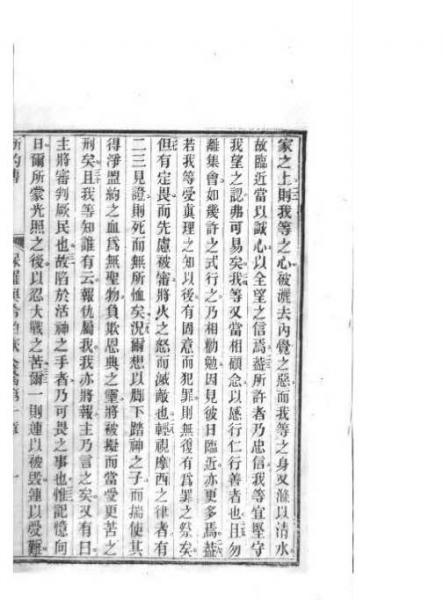 家之上則我等之心被灑去內覺之惡而我等之身又滌以清水
故臨近當以誠心以全望之信焉蓋所許者乃忠信我等宜堅守
我望之認弗可易矣我等又當相顧念以感行仁行善者也且勿
離集會如幾許之式行之乃相勸勉因見彼日臨近亦更多焉蓋
若我等受眞理之知以後有固意而犯罪則無復有爲罪之祭矣
但有定畏而先慮被審將火之怒而滅敵也輕視摩西之律者有
二三見證則死而無所恤矣況爾想以脚下踏神之子而揣使其
得淨盟約之血爲無聖物負欺恩典之靈將被擬而當受更苦之
刑矣且我等知誰有云報仇屬我我亦將報主乃言之矣又有曰
主將審判厥民也故陷於活神之手者乃可畏之事也惟記憶向
日爾所蒙光照之後以忍大戰之苦爾一則連以被毁連以受難